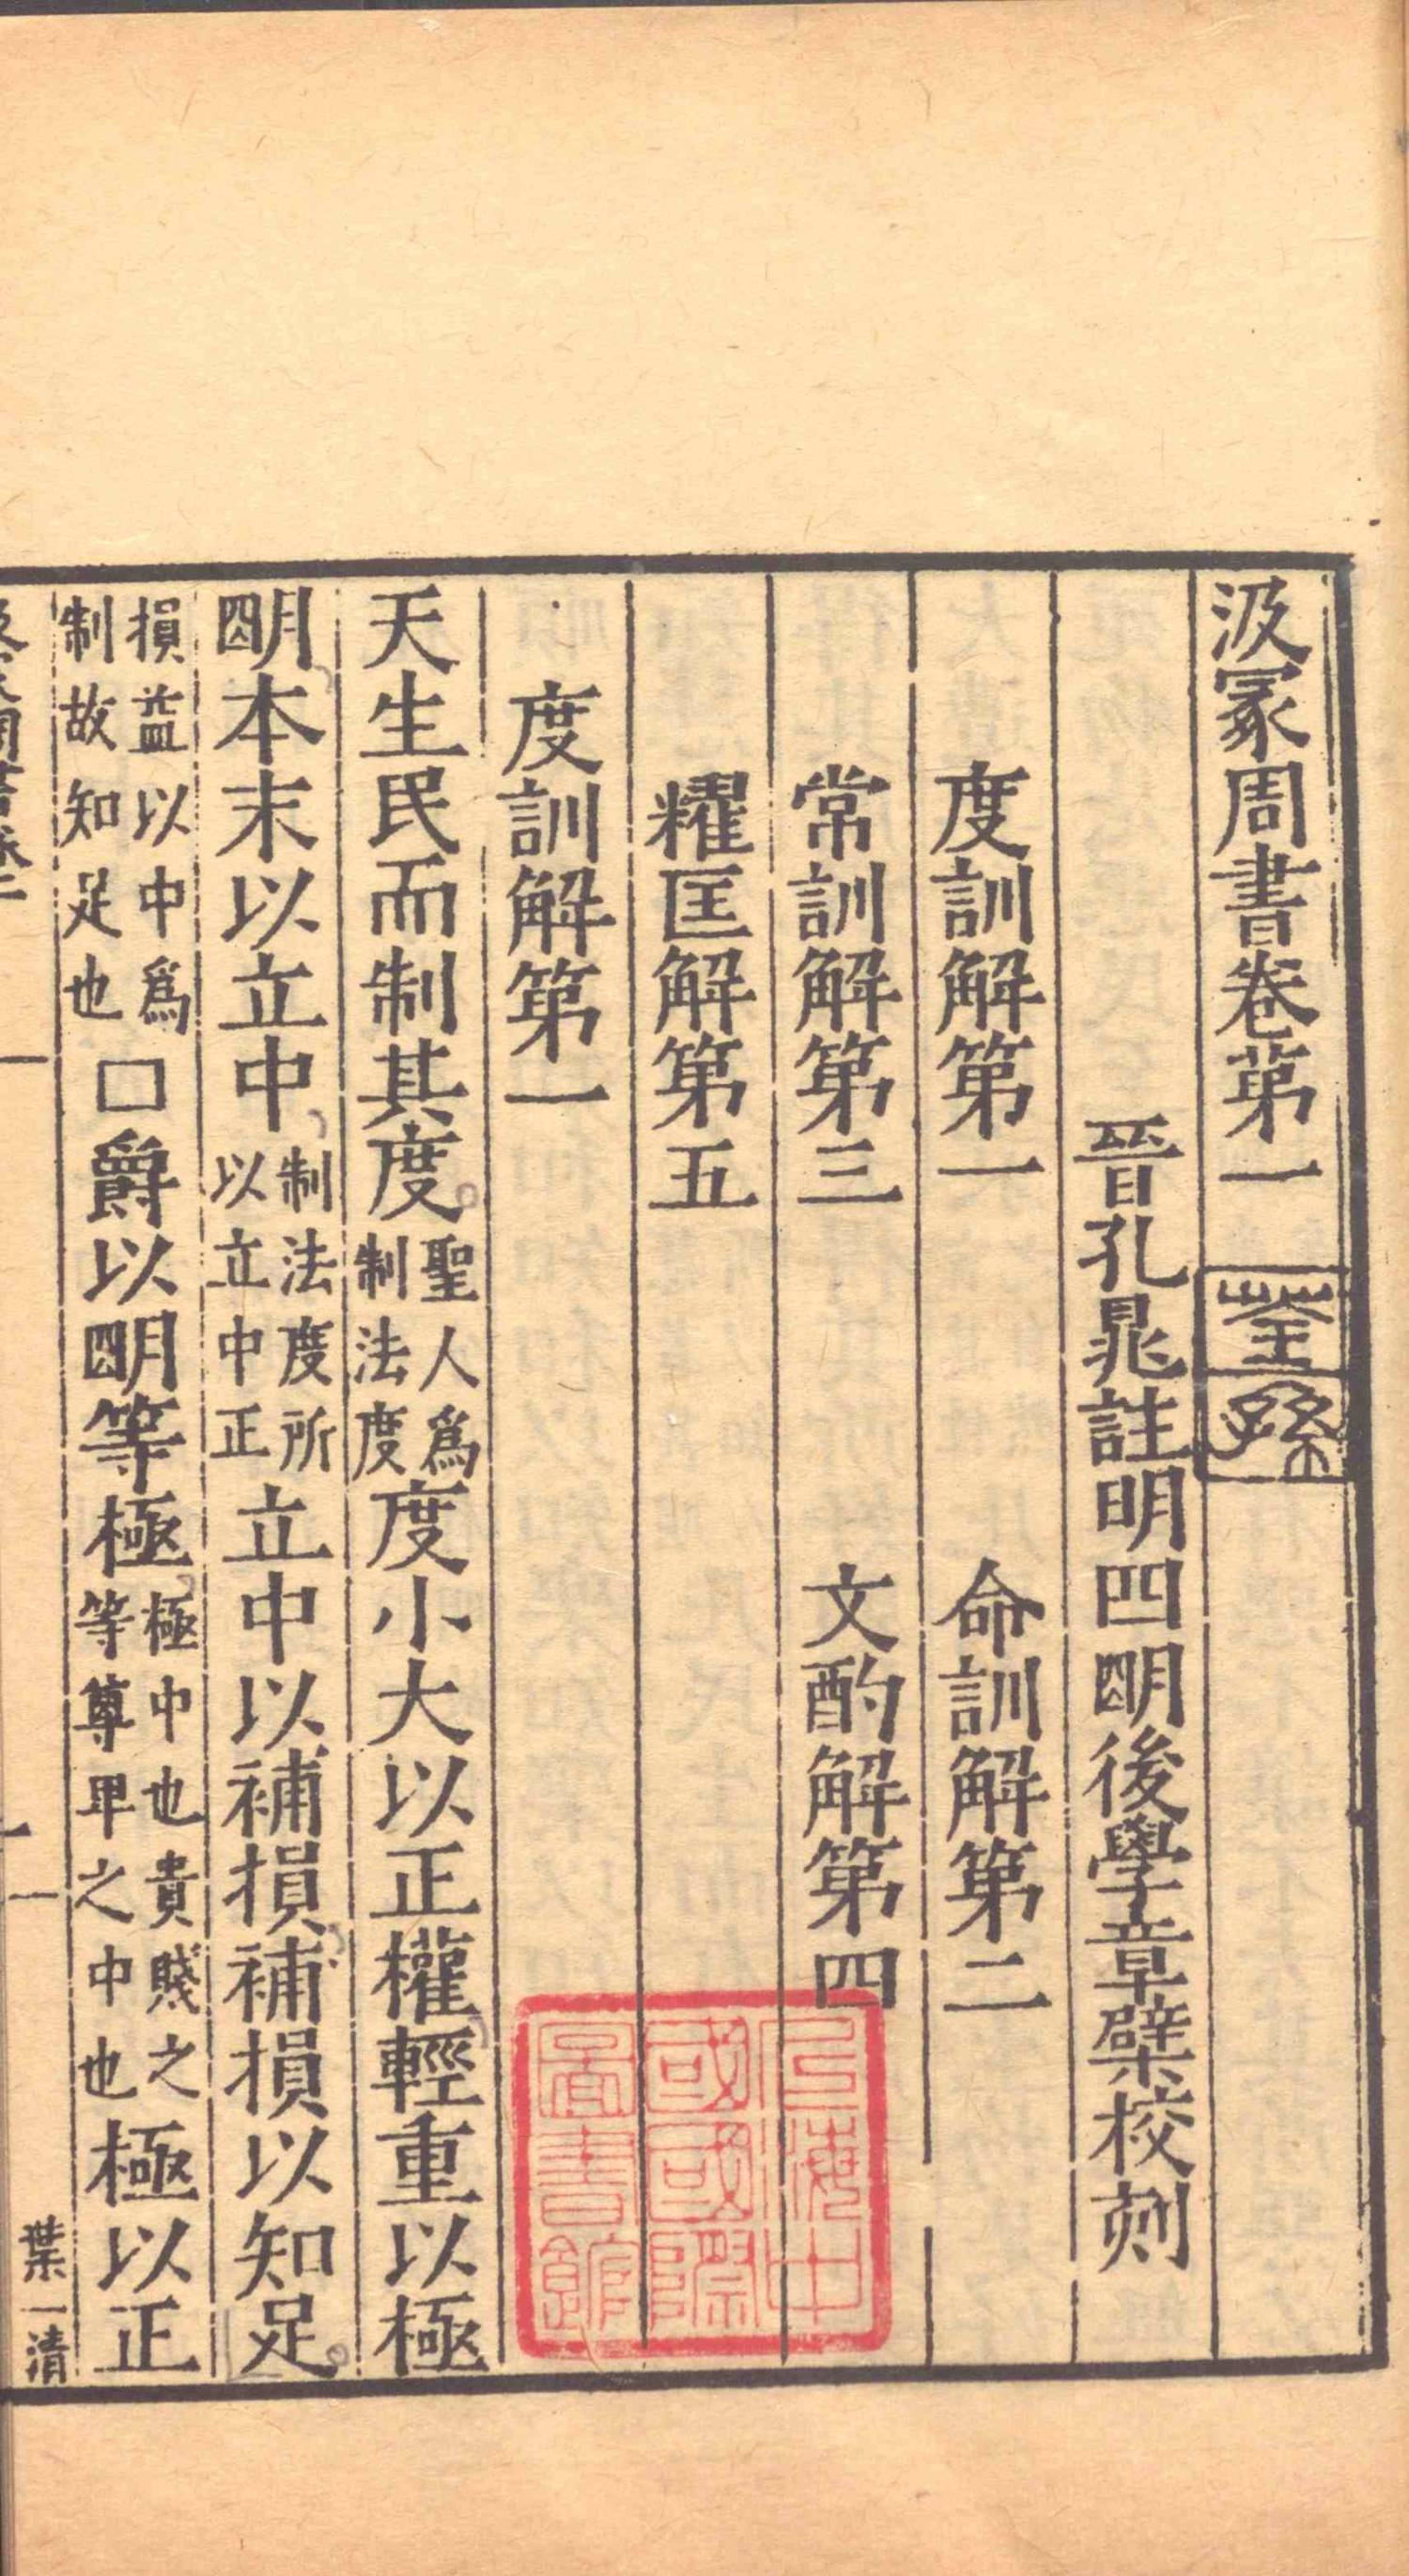 汲冢周書卷第一
荃孫
晉孔晁註明四朙後學章檗校刻
度訓解第一　命訓解第二
常訓解第三　文酌解第四
糴匡解第五
度訓解第一
天生民而制其度聖人爲制法度度小大以正權輕重以極
朙本末以立中制法度所以立中正立中以補損補損以知足
損益以中爲制故知足也□爵以朙等極極中也貴賤之等尊卑之中也極以正
一
葉一清
上海中國國際圖書館